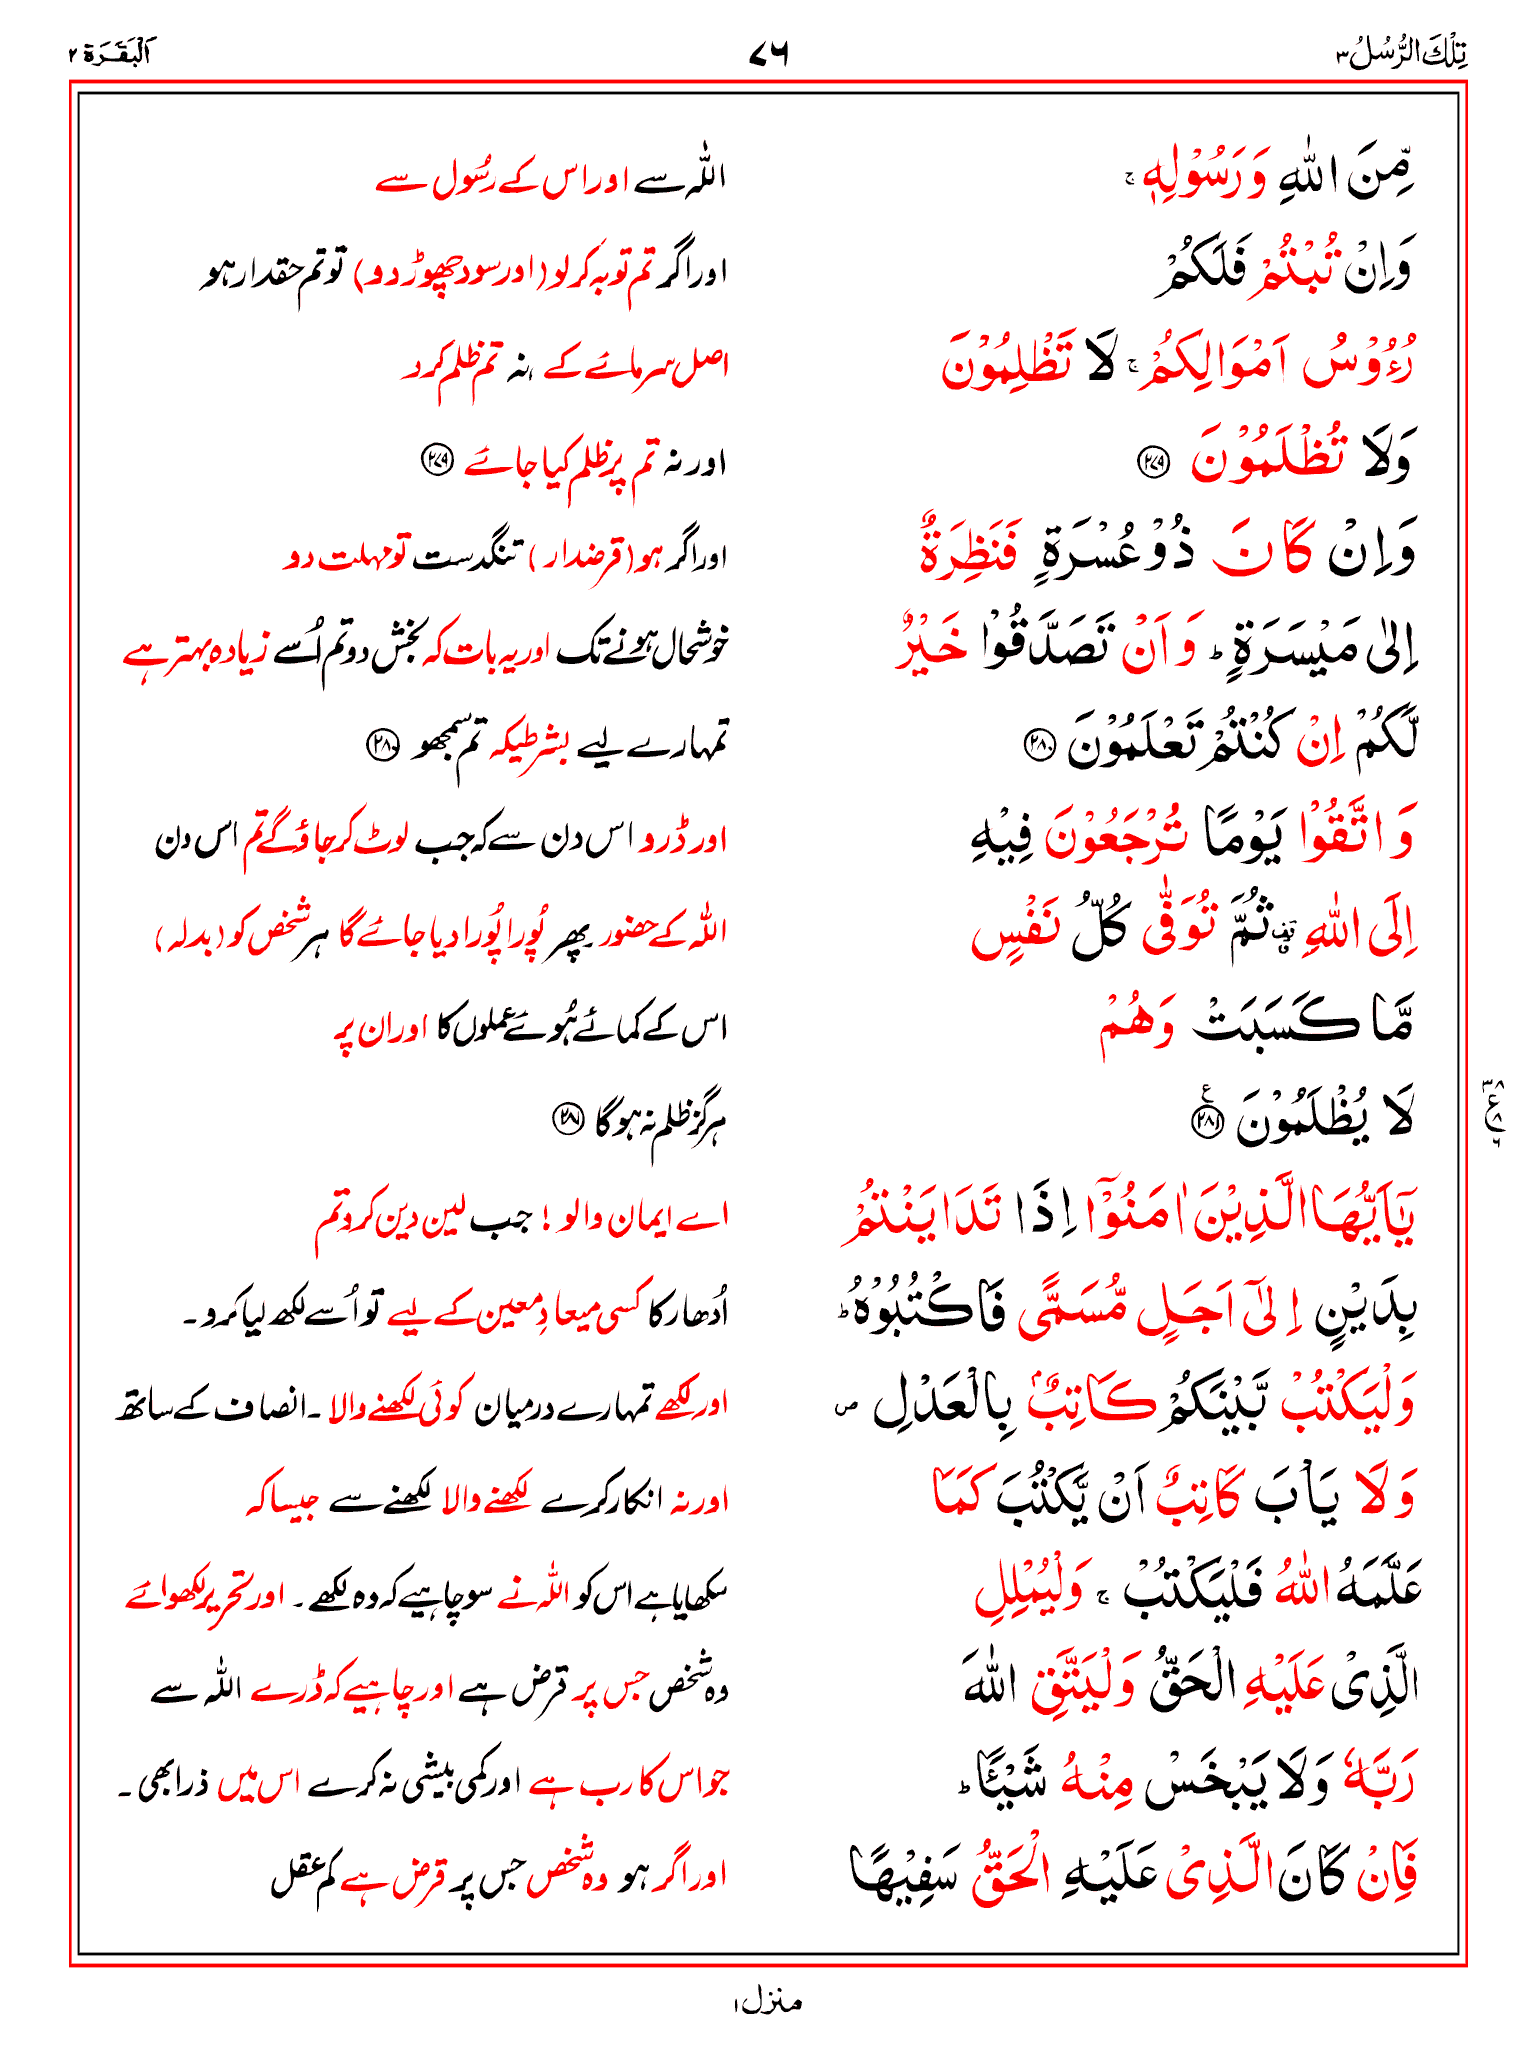 تِلْكَ الرُّسُلُ ٣ ٧٦ اَلْبَقَرَة ٢
مِّنَ اللّٰهِ وَرَسُوْلِهٖ ۚ اللہ سے اور اس کے رسُول سے
وَاِنْ تُبْتُمْ فَلَكُمْ اور اگر تم توبہ کر لو (اور سود چھوڑ دو) تو تم حقدار ہو
رُءُوْسُ اَمْوَالِكُمْ ۚ لَا تَظْلِمُوْنَ اصل سرمائے کے ، نہ تم ظلم کرو
وَلَا تُظْلَمُوْنَ ٢٧٩ اور نہ تم پر ظلم کیا جائے ٢٧٩
وَاِنْ كَانَ ذُوْ عُسْرَةٍ فَنَظِرَةٌ اور اگر ہو (قرضدار) تنگدست تو مہلت دو
اِلٰى مَيْسَرَةٍ ؕ وَاَنْ تَصَدَّقُوْا خَيْرٌ خوشحال ہونے تک اور یہ بات کہ بخش دو تم اُسے زیادہ بہتر ہے
لَّكُمْ اِنْ كُنْتُمْ تَعْلَمُوْنَ ٢٨٠ تمہارے لیے بشرطیکہ تم سمجھو ٢٨٠
وَاتَّقُوْا يَوْمًا تُرْجَعُوْنَ فِيْهِ اور ڈرو اس دن سے کہ جب لوٹ کر جاؤ گے تم اس دن
اِلَى اللّٰهِ ۫ ثُمَّ تُوَفّٰى كُلُّ نَفْسٍ اللہ کے حضور پھر پُورا پُورا دیا جائے گا ہر شخص کو (بدلہ)
مَّا كَسَبَتْ وَهُمْ اس کے کمائے ہُوئے عملوں کا اور ان پر
لَا يُظْلَمُوْنَ ٢٨١ ع ہرگز ظلم نہ ہو گا ٢٨١
يٰٓاَيُّهَا الَّذِيْنَ اٰمَنُوْٓا اِذَا تَدَايَنْتُمْ اے ایمان والو ! جب لین دین کرو تم
بِدَيْنٍ اِلٰٓى اَجَلٍ مُّسَمًّى فَاكْتُبُوْهُ ؕ اُدھار کا کسی میعادِ معین کے لیے تو اُسے لکھ لیا کرو۔
وَلْيَكْتُبْ بَّيْنَكُمْ كَاتِبٌۢ بِالْعَدْلِ ۪ اور لکھے تمہارے درمیان کوئی لکھنے والا ۔ انصاف کے ساتھ
وَلَا يَاْبَ كَاتِبٌ اَنْ يَّكْتُبَ كَمَا اور نہ انکار کرے لکھنے والا لکھنے سے جیسا کہ
عَلَّمَهُ اللّٰهُ فَلْيَكْتُبْ ۚ وَلْيُمْلِلِ سکھایا ہے اس کو اللہ نے سو چاہیے کہ وہ لکھے ۔ اور تحریر لکھوائے
الَّذِيْ عَلَيْهِ الْحَقُّ وَلْيَتَّقِ اللّٰهَ وہ شخص جس پر قرض ہے اور چاہیے کہ ڈرے اللہ سے
رَبَّهٗ وَلَا يَبْخَسْ مِنْهُ شَيْـًٔا ؕ جو اس کا رب ہے اور کمی بیشی نہ کرے اس میں ذرا بھی ۔
فَاِنْ كَانَ الَّذِيْ عَلَيْهِ الْحَقُّ سَفِيْهًا اور اگر ہو وہ شخص جس پر قرض ہے کم عقل
٣٨
ع ٨
٦
منزل ١